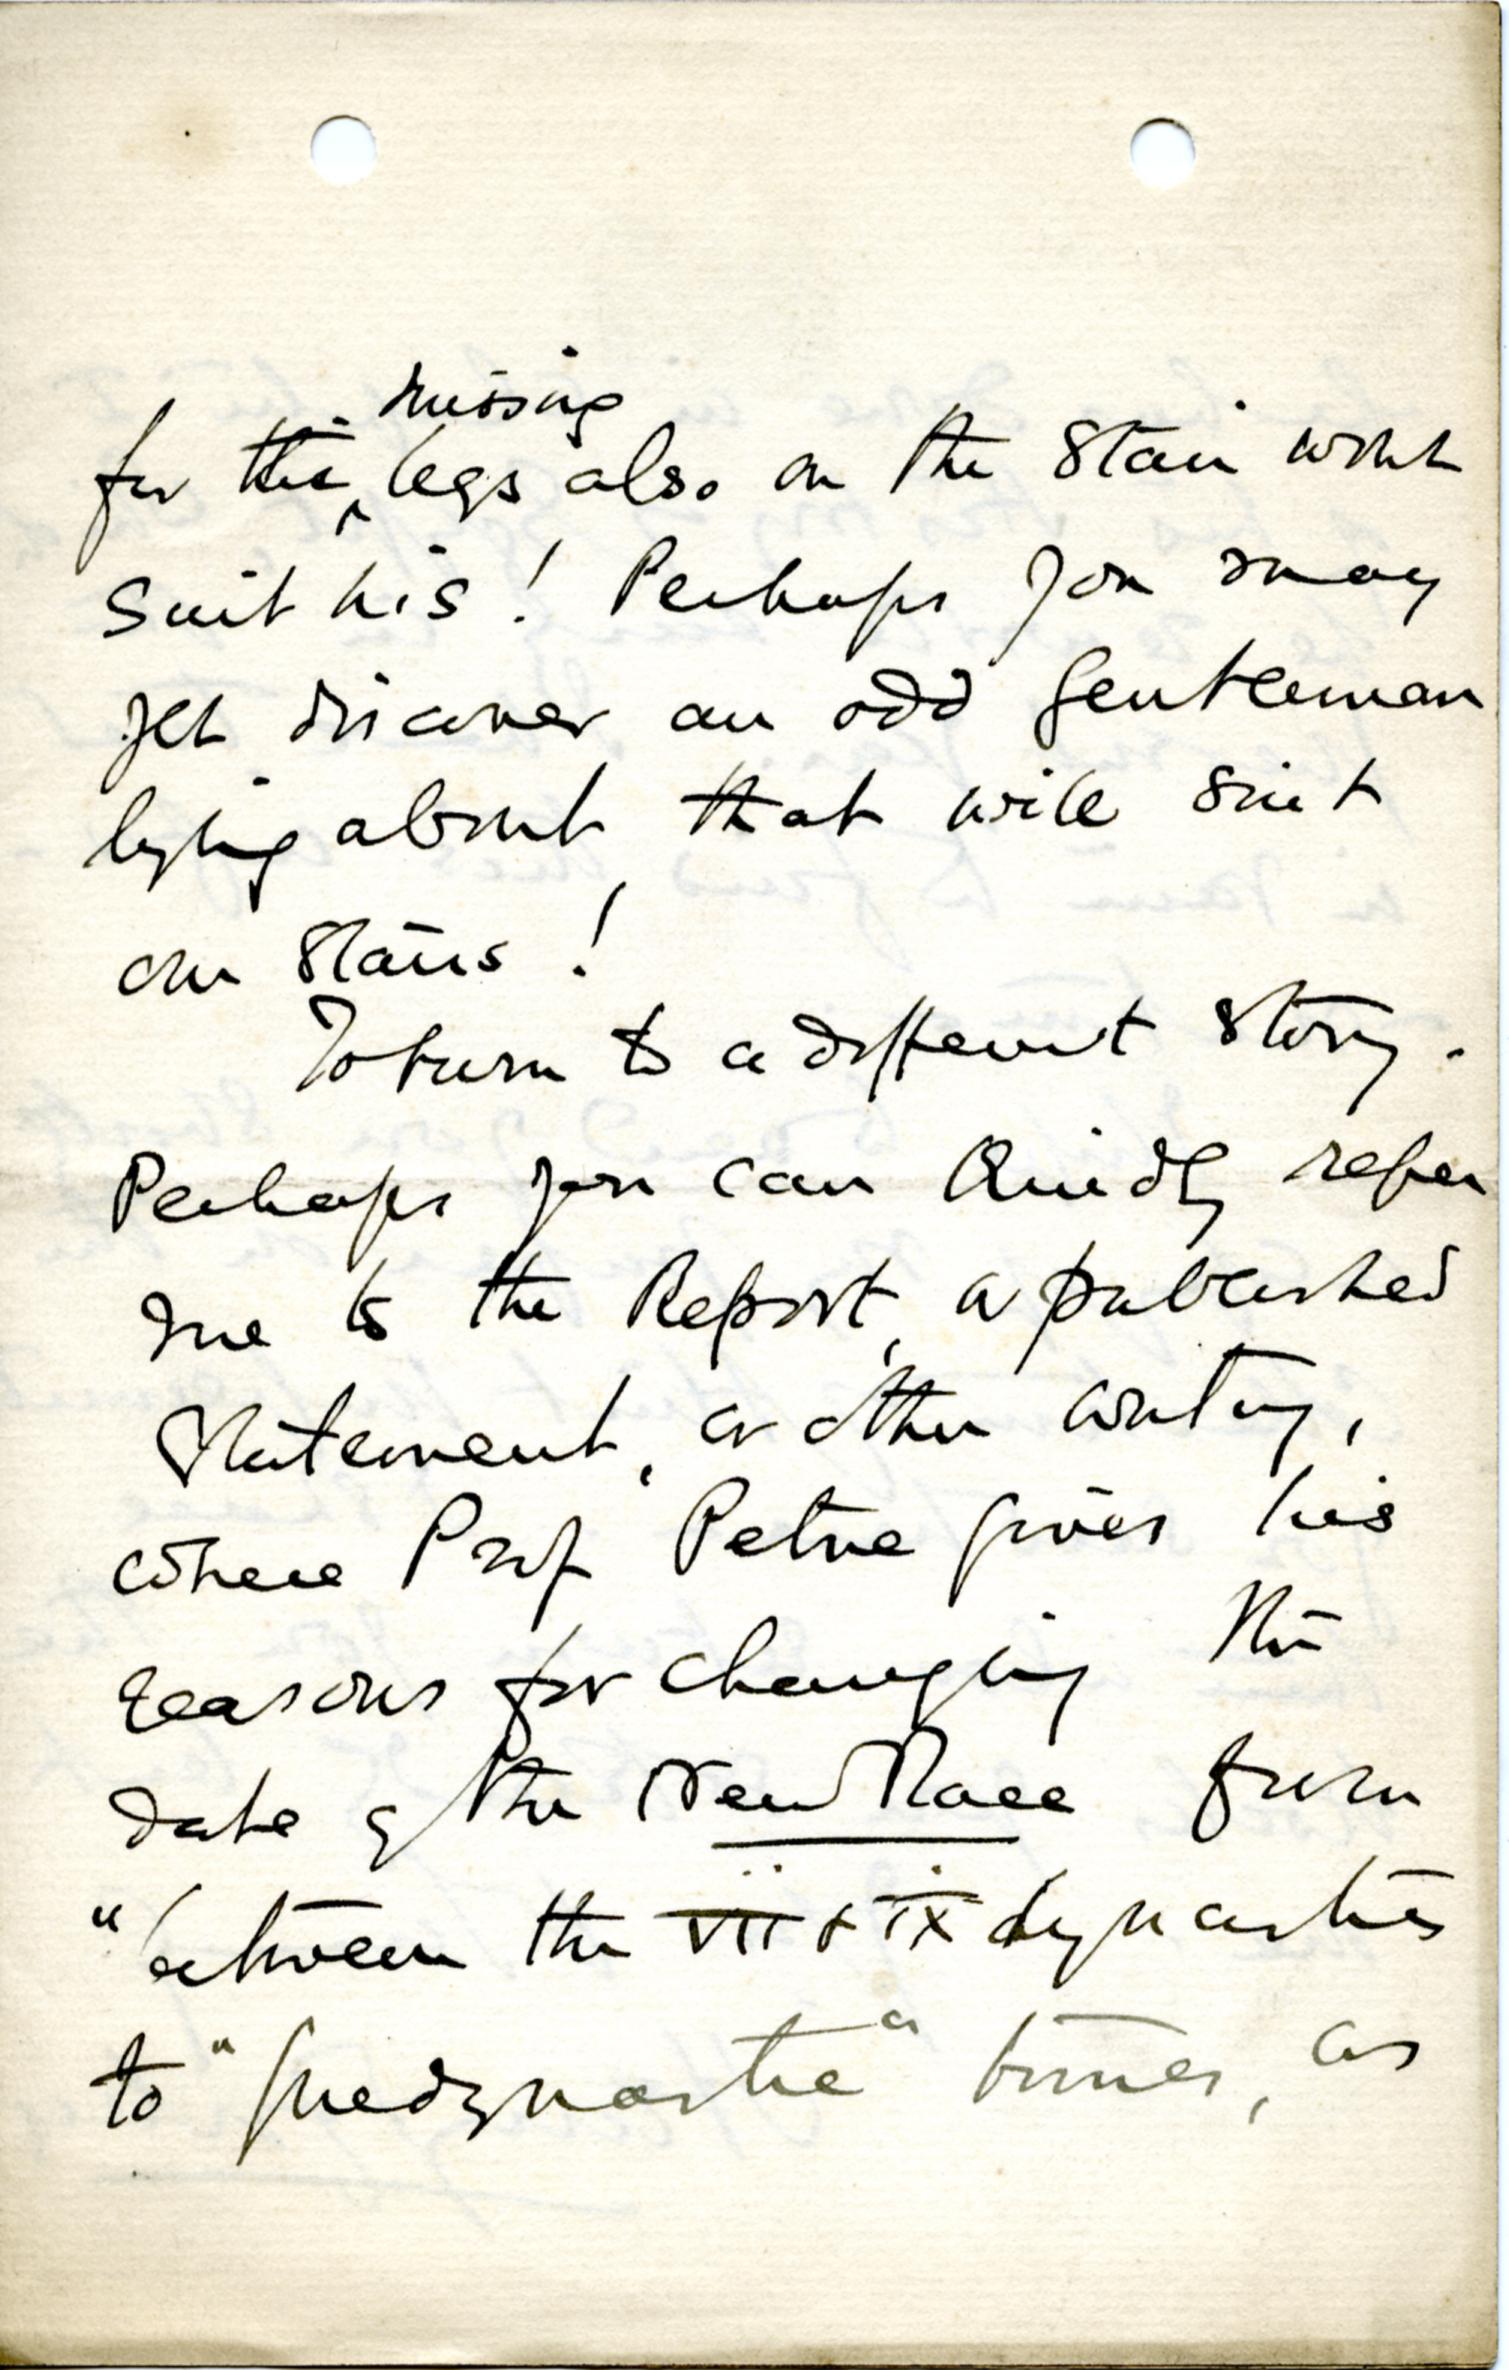 missing
for the ^ legs also on the Stair wont
suit his! Perhaps you may
yet discover an odd gentleman
lying about that will suit
our Stairs!
To turn to a different story.
Perhaps you can kindly refer
me to the Report, a published
Statement, or other writing,
where Prof Petrie gives his
reasons for changing the
date of the New Race from
"between the vii & ix dynasties
to "predynastic" times, as